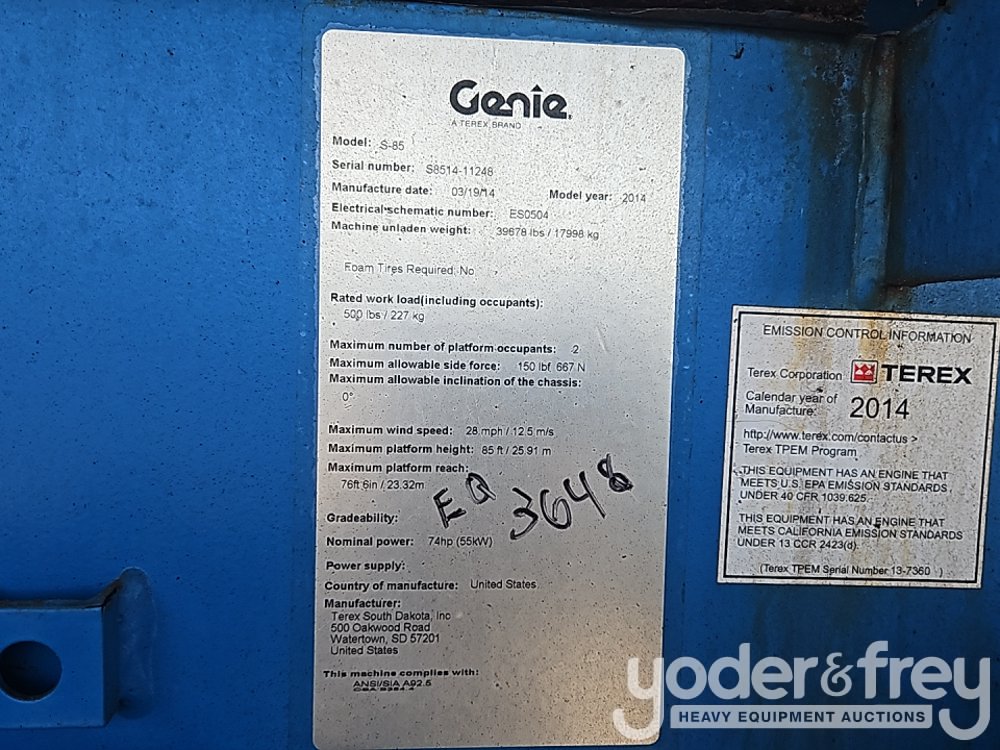 Genie
A TEREX BRAND
Model: S-85
Serial number: S8514-11248
Manufacture date: 03/19/14 Model year: 2014
Electrical schematic number: ES0504
Machine unladen weight: 39678 lbs / 17998 kg
Foam Tires Required: No
Rated work load(including occupants):
500 lbs / 227 kg
Maximum number of platform occupants: 2
Maximum allowable side force: 150 lbf 667 N
Maximum allowable inclination of the chassis:
0°
Maximum wind speed: 28 mph / 12.5 m/s
Maximum platform height: 85 ft / 25.91 m
Maximum platform reach:
76ft 6in / 23.32m
EQ 3648
Gradeability:
Nominal power: 74hp (55kW)
Power supply:
Country of manufacture: United States
Manufacturer:
Terex South Dakota, Inc
500 Oakwood Road
Watertown, SD 57201
United States
This machine complies with:
ANSI/SIA A92.5
CSA B354.4
EMISSION CONTROL INFORMATION
Terex Corporation TEREX
Calendar year of
Manufacture: 2014
http://www.terex.com/contactus >
Terex TPEM Program
THIS EQUIPMENT HAS AN ENGINE THAT
MEETS U.S. EPA EMISSION STANDARDS
UNDER 40 CFR 1039.625.
THIS EQUIPMENT HAS AN ENGINE THAT
MEETS CALIFORNIA EMISSION STANDARDS
UNDER 13 CCR 2423(d).
(Terex TPEM Serial Number 13-7360 )
yoder&frey
HEAVY EQUIPMENT AUCTIONS